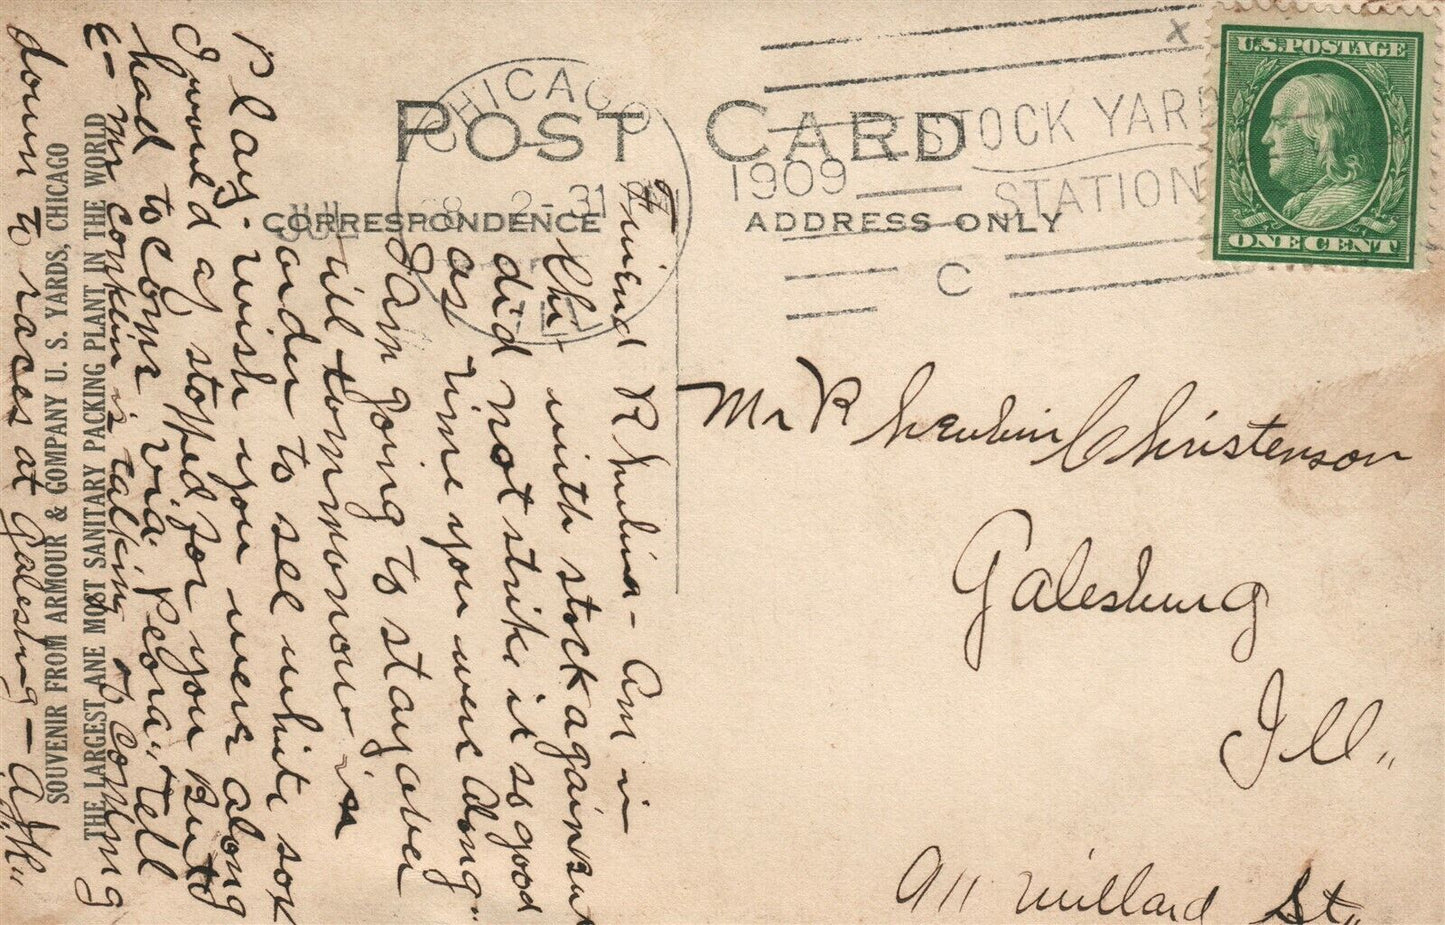 POST CARD
CORRESPONDENCE
ADDRESS ONLY
CHICAGO
JUL 28 2-31
ILL
1909
STOCK YARDS
STATION
C
X
U.S. POSTAGE
ONE CENT
Mr R Christenson
Galesburg
Ill,,
911 Millard St,,
Friend R - Am in
Chi- with stock again But
did not strike it so good
as time you were along,,
I am going to stay over
till tomorrow in
order to see white sox
play - wish you were along
I would of stopped for you But
had to come via. Peoria,, Tell
E- Mr Conkin is talking of coming
down to races at Galesburg - A.J.K.,,
SOUVENIR FROM ARMOUR & COMPANY U. S. YARDS, CHICAGO
THE LARGEST ANE MOST SANITARY PACKING PLANT IN THE WORLD